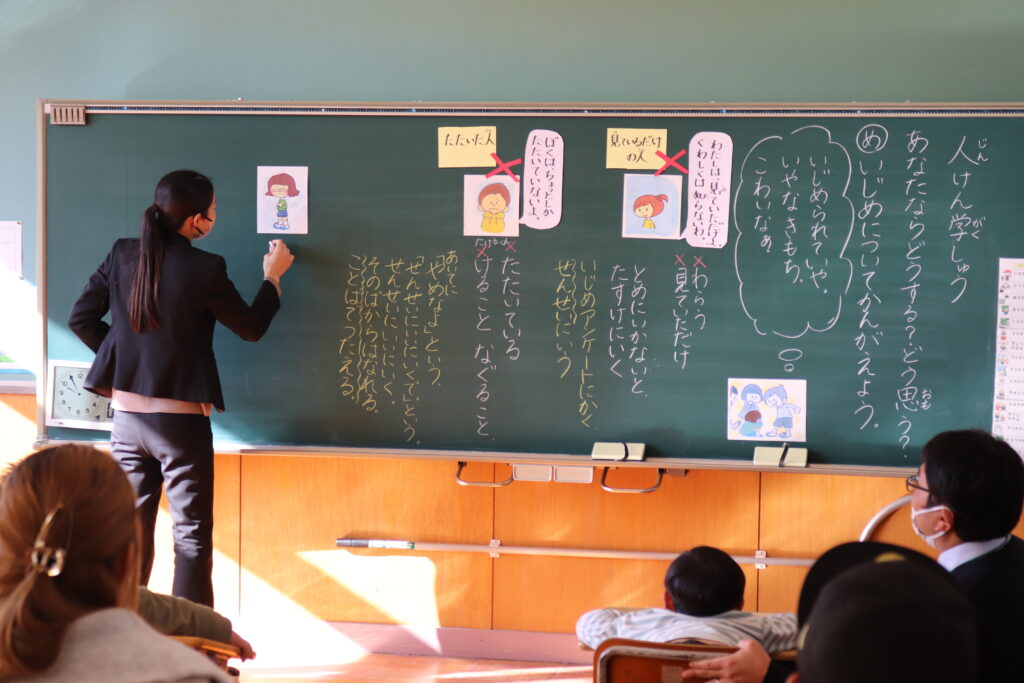 人けん学しゅう
じん
がく
あなたならどうする?どう思う?
おも
めいじめについてかんがえよう。
いじめられていや。
いやなきもち。
こわいなぁ
わたしは、見ていただけよ。
くわしくは知らないわ。
見ているだけ
の人
×わらう
×見ていただけ
とめにいかないと
たすけにいく
いじめアンケートにかく
せんせいにいう
ぼくは、ちょっとしか
たたいていないよ。
たたいた人
たたいている
×けること なぐること
あいてに
「やめなよ」という。
「せんせいにいくで」という
せんせいにいいにいく。
そのばからはなれる。
ことばでつたえる。